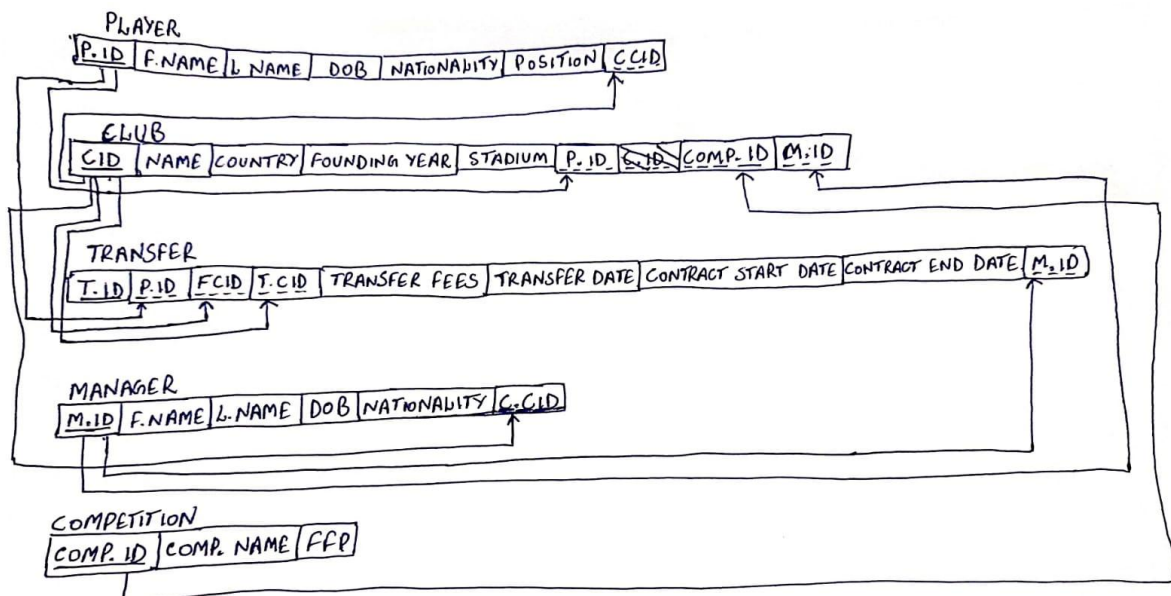 PLAYER
P.ID F.NAME L NAME DOB NATIONALITY POSITION CCID
CLUB
CID NAME COUNTRY FOUNDING YEAR STADIUM P.ID C.ID COMP.ID M.ID
TRANSFER
T.ID P.ID FCID T.CID TRANSFER FEES TRANSFER DATE CONTRACT START DATE CONTRACT END DATE M.ID
MANAGER
M.ID F.NAME L.NAME DOB NATIONALITY C.CID
COMPETITION
COMP. ID COMP. NAME FFP